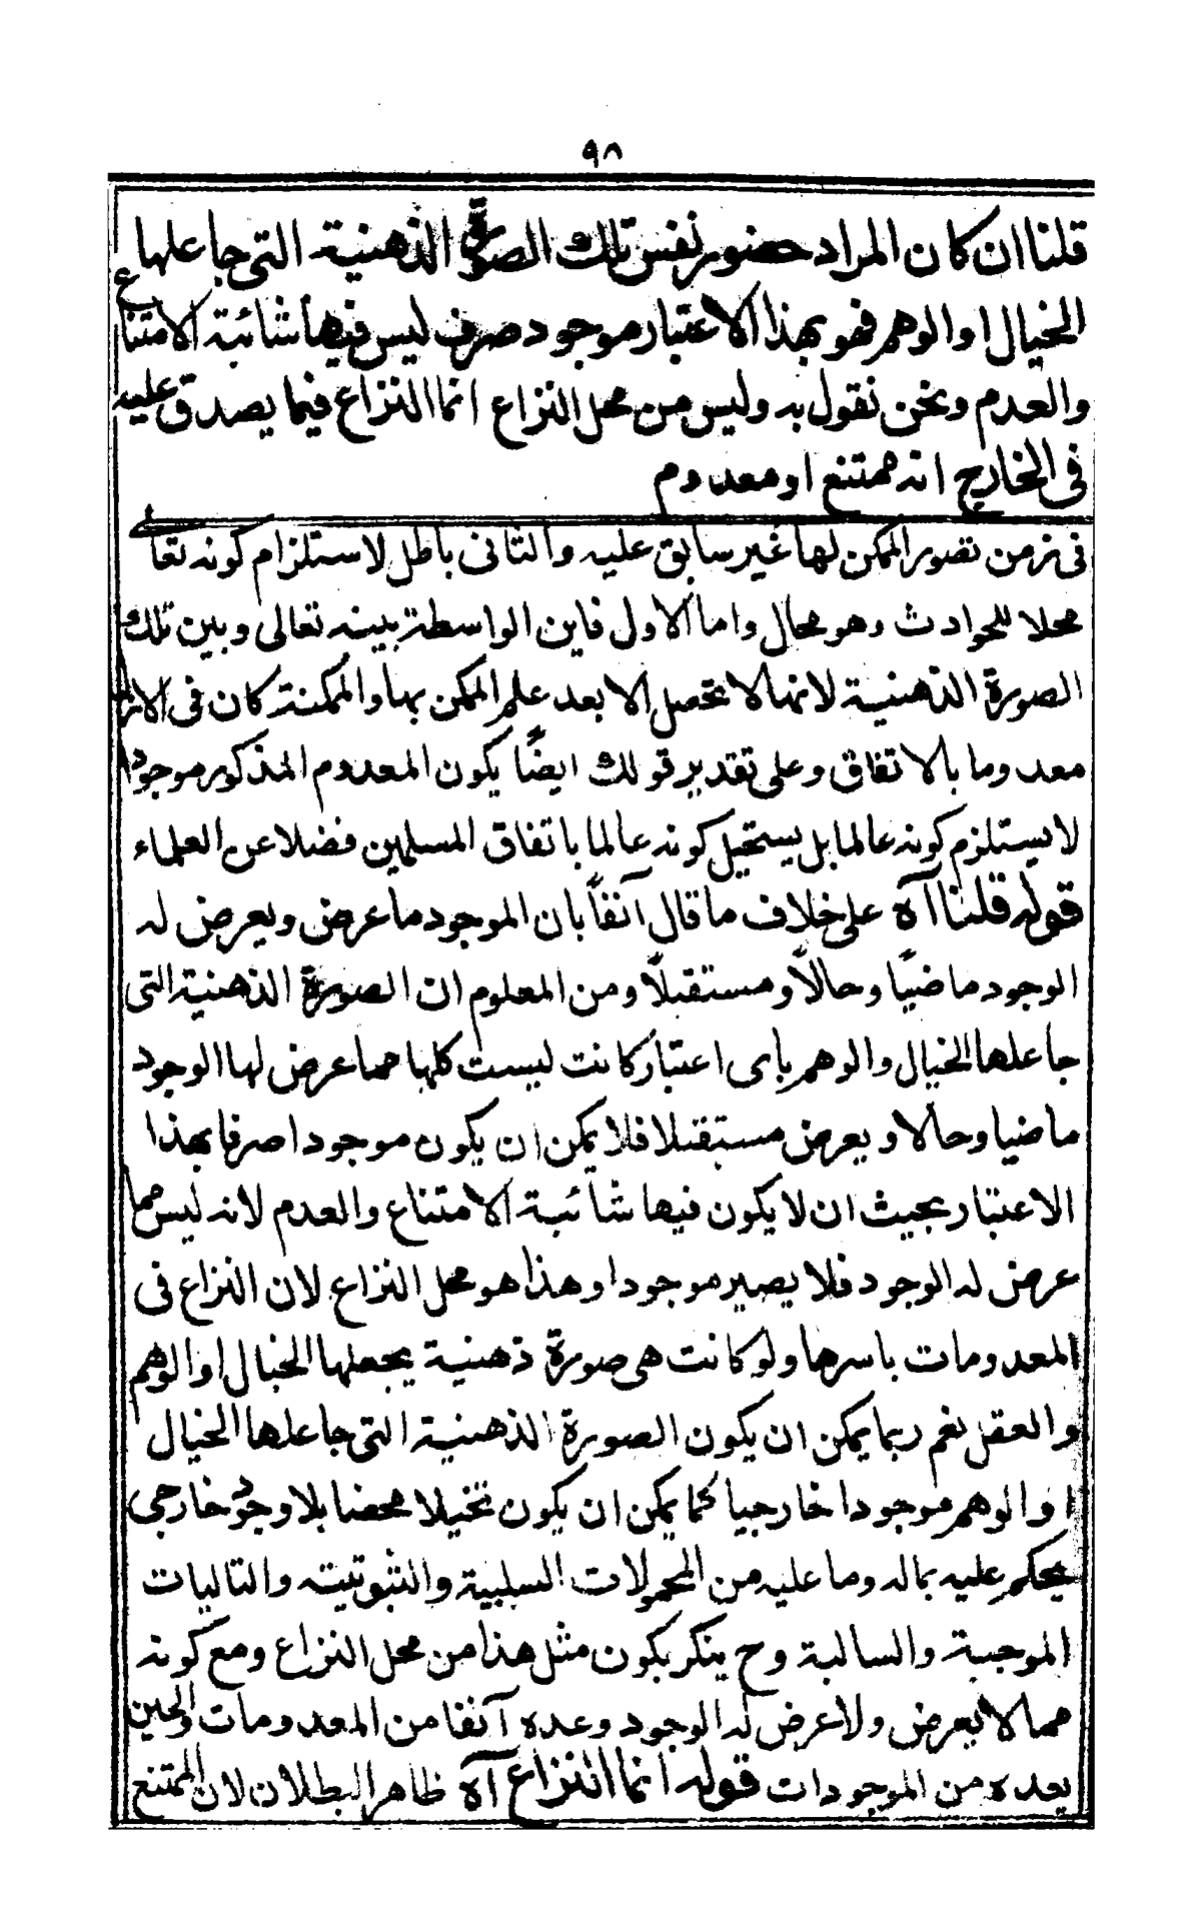 ٩٨
قلنا ان كان المراد حضور نفس تلك الصورة الذهنية التى جاعلها
الخيال او الوهم فهو بهذا الاعتبار موجود صرف ليس فيها شائبة الامتناع
والعدم ونحن نقول به وليس من محل النزاع انما النزاع فيما يصدق عليه
فى الخارج انه ممتنع او معدوم
فى زمن تصور الممكن لها غير سابق عليه والثانى باطل لاستلزام كونه تعالى
محلا للحوادث وهو محال واما الاول فاين الواسطة بينه تعالى وبين تلك
الصورة الذهنية لانها لا تحصل الا بعد علم الممكن بها والممكنة كان فى الازل
معدوما بالاتفاق وعلى تقدير قولك ايضًا يكون المعدوم المذكور موجودا
لا يستلزم كونه عالما بل يستحيل كونه عالما باتفاق المسلمين فضلا عن العلماء
قوله قلنا آه على خلاف ما قال آنفاً بان الموجود ما عرض ويعرض له
الوجود ماضيًا وحالاً ومستقبلاً ومن المعلوم ان الصورة الذهنية التى
جاعلها الخيال والوهم باى اعتبار كانت ليست كلها مما عرض لها الوجود
ماضيا وحالا ويعرض مستقبلا فلا يمكن ان يكون موجودا صرفا بهذا
الاعتبار بحيث ان لا يكون فيها شائبة الامتناع والعدم لانه ليس مما
عرض له الوجود فلا يصير موجودا وهذا هو محل النزاع لان النزاع فى
المعدومات باسرها ولو كانت هى صورة ذهنية يجعلها الخيال او الوهم
والعقل نعم ربما يمكن ان يكون الصورة الذهنية التى جاعلها الخيال
او الوهم موجودا خارجيا كما يمكن ان يكون تخيلا محضا بلا وجود خارجى
يحكم عليه بماله وما عليه من المحمولات السلبية والثبوتيته والتاليات
الموجبة والسالبة وح ينكر بكون مثل هذا من محل النزاع ومع كونه
مما لا يعرض ولا عرض له الوجود وعده آنفا من المعدومات والحين
يعده من الموجودات قوله انما النزاع آه ظاهر البطلان لان الممتنع